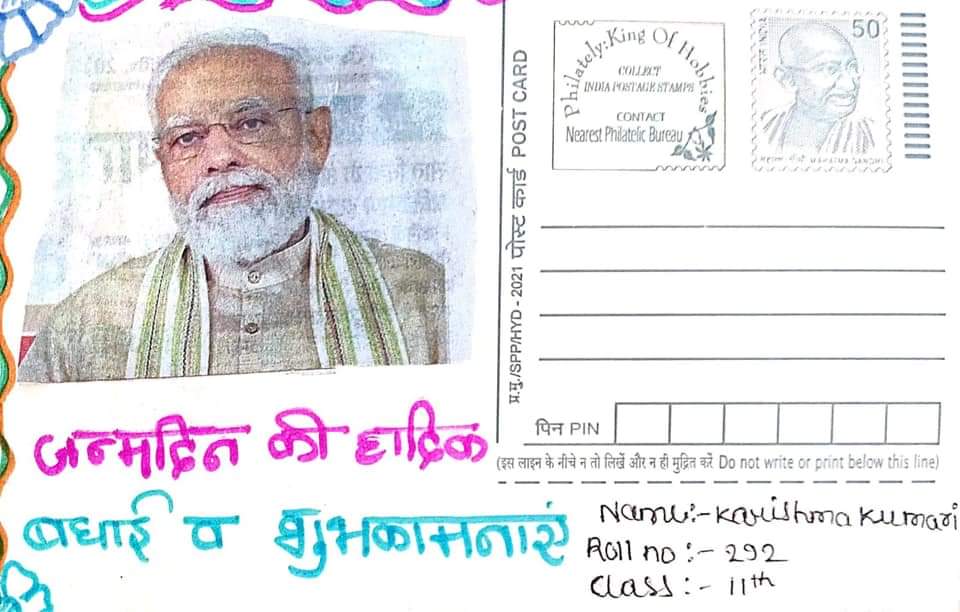 Philately:King Of Hobbies
COLLECT
INDIA POSTAGE STAMPS
CONTACT
Nearest Philatelic Bureau
50
भारत INDIA
महात्मा गाँधी MAHATMA GANDHI
प्र.मु./SPP/HYD - 2021 पोस्ट कार्ड POST CARD
पिन PIN
(इस लाइन के नीचे न तो लिखें और न ही मुद्रित करें Do not write or print below this line)
जन्मदिन की हाद्रिक
बधाई व शुभकामनाएं
Name:- Karishma Kumari
Roll no :- 292
Class :- 11th